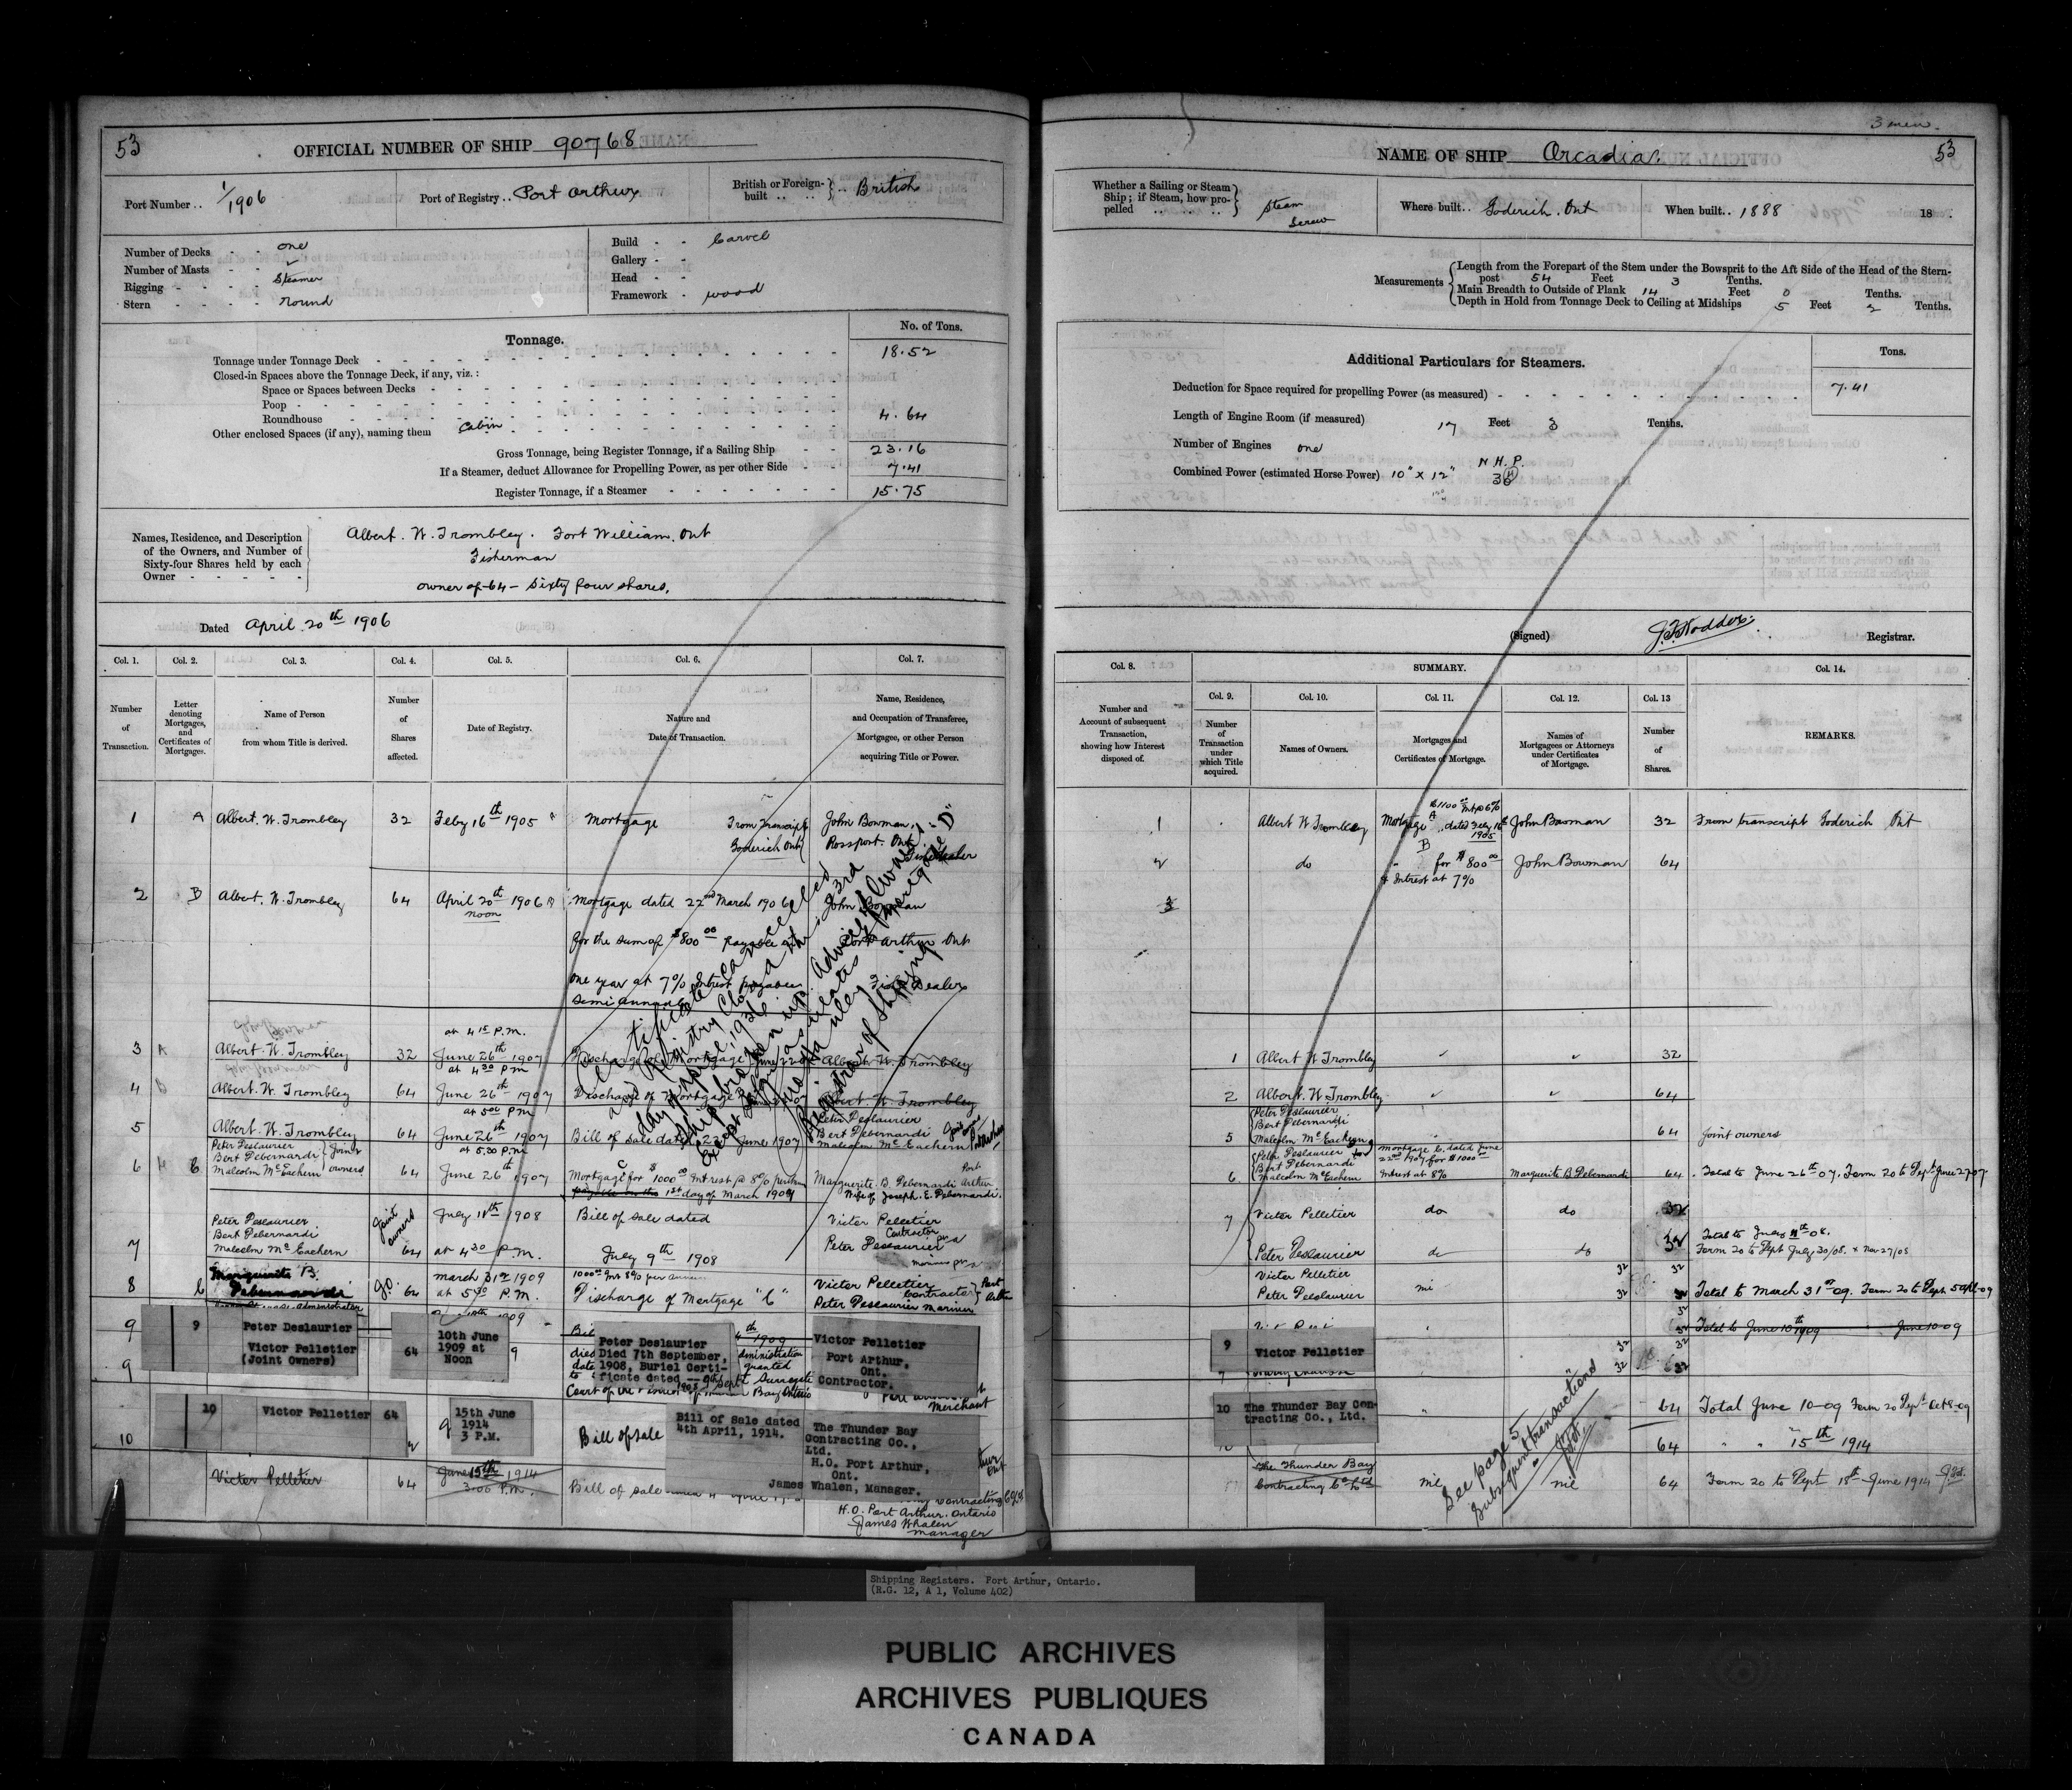 53
OFFICIAL NUMBER OF SHIP 90768
Port Number .. 1/1906
Port of Registry .. Port Arthur
British or Foreign-built .. .. British
Number of Decks - - one
Number of Masts - -
Rigging - - - - Steamer
Stern - - - round
Build - - Carvel
Gallery - -
Head - -
Framework - wood
Tonnage.
No. of Tons.
Tonnage under Tonnage Deck 18.52
Closed-in Spaces above the Tonnage Deck, if any, viz. :
Space or Spaces between Decks
Poop
Roundhouse 4.64
Other enclosed Spaces (if any), naming them Cabin
Gross Tonnage, being Register Tonnage, if a Sailing Ship 23.16
If a Steamer, deduct Allowance for Propelling Power, as per other Side 7.41
Register Tonnage, if a Steamer 15.75
Names, Residence, and Description of the Owners, and Number of Sixty-four Shares held by each Owner
Albert. W. Trombley. Fort William. Ont
Fisherman
owner of 64 - Sixty four shares.
Dated April 20th 1906
Col. 1. Col. 2. Col. 3. Col. 4. Col. 5. Col. 6. Col. 7.
Number of Transaction.
Letter denoting Mortgages, and Certificates of Mortgages.
Name of Person from whom Title is derived.
Number of Shares affected.
Date of Registry.
Nature and Date of Transaction.
Name, Residence, and Occupation of Transferee, Mortgagee, or other Person acquiring Title or Power.
1 A Albert. W. Trombley 32 Feby 16th 1905 Mortgage From Transcript Goderich Ont John Bowman. Rossport. Ont Fish Dealer
2 B Albert. W. Trombley 64 April 20th 1906 noon Mortgage dated 22nd March 1906 John Bowman
for the sum of $800 00 payable Port Arthur Ont
one year at 7% Interest payable Fish Dealer
semi annual
John Bowman
at 4 15 P.M.
3 A Albert. W. Trombley 32 June 26th 1907 Discharge of Mortgage June 22 Albert W. Trombley
John Bowman
at 4 30 P M
4 B Albert. W. Trombley 64 June 26th 1907 Discharge of Mortgage Albert W. Trombley
at 5 00 P M
5 Albert. W. Trombley 64 June 26th 1907 Bill of Sale dated 22 June 1907 Peter Deslaurier Bert Debernardi Malcolm McEachern
at 5.30 P.M
6 C Peter Deslaurier Bert Debernardi Malcolm McEachern Joint owners 64 June 26th 1907 Mortgage C for $1000 00 Intrest @ 8% per 1st day of March 1909 Marguerite. B. Debernardi Port Arthur. Wife of Joseph. E. Debernardi.
7 Peter Deslaurier Bert Debernardi Malcolm McEachern Joint owners 64 July 11th 1908 at 4 30 P.M. Bill of Sale dated July 9th 1908 Victor Pelletier Contractor Peter Deslaurier
8 C Marguerite B. Debernardi 64 March 31st 1909 at 5 P.M. Discharge of Mortgage "C" Victor Pelletier Contractor Peter Deslaurier Mariner
9 9 Peter Deslaurier
Victor Pelletier
(Joint Owners)
64
10th June
1909 at
Noon
Peter Deslaurier
Died 7th September,
1908, Buriel Certi-
ficate dated
Victor Pelletier
Port Arthur,
Ont.
Contractor.
9
Surrogate
Merchant
10 Victor Pelletier 64
15th June
1914
3 P.M.
Bill of Sale
Bill of Sale dated
4th April, 1914.
The Thunder Bay
Contracting Co.,
Ltd.
H.O. Port Arthur,
Ont.
James Whalen, Manager.
10
Victor Pelletier 64 June 15th 1914 3.00 P.M. Bill of Sale
H.O. Port Arthur. Ontario
James Whalen
manager
Certificate cancelled
and Registry Closed this 23rd
day of
Ship broken up. Advice of Owner.
Except
Registrar of Shipping
3 men.
NAME OF SHIP Arcadia.
53
Whether a Sailing or Steam Ship ; if Steam, how propelled Steam Screw
Where built .. Goderich. Ont
When built .. 1888
18 .
Measurements
Length from the Forepart of the Stem under the Bowsprit to the Aft Side of the Head of the Stern-post 54 Feet 3 Tenths.
Main Breadth to Outside of Plank 14 Feet 0 Tenths.
Depth in Hold from Tonnage Deck to Ceiling at Midships 5 Feet 2 Tenths.
Additional Particulars for Steamers.
Tons.
Deduction for Space required for propelling Power (as measured) 7.41
Length of Engine Room (if measured) 17 Feet 3 Tenths.
Number of Engines one
Combined Power (estimated Horse Power) 10" x 12" N.H.P. 36
(Signed) Registrar.
Col. 8. SUMMARY. Col. 14.
Col. 9. Col. 10. Col. 11. Col. 12. Col. 13
Number and Account of subsequent Transaction, showing how Interest disposed of.
Number of Transaction under which Title acquired.
Names of Owners.
Mortgages and Certificates of Mortgage.
Names of Mortgagees or Attorneys under Certificates of Mortgage.
Number of Shares.
REMARKS.
1 Albert W Trombley $1100 00 Int @ 6% Mortgage A dated Feby 16th 1905 John Bowman 32 From transcript Goderich Ont
2 do B " for $800 00 & Interest at 7% John Bowman 64
3
1 Albert W Trombley 32
2 Albert. W. Trombley 64
5 Peter Deslaurier Bert Debernardi Malcolm McEachern 64 Joint owners
6 Peter Deslaurier Bert Debernardi Malcolm McEachern Mortgage C. dated June 22nd 1907 for $1000 Intrest at 8% Marguerite B Debernardi 64 Total to June 26th 07. Form 20 to Dept June 27 07
7 Victor Pelletier do do 32
Peter Deslaurier do do 32 Total to July 11th 08. Form 20 to Dept July 30/08. & Nov 27/08
Victor Pelletier 32
Peter Deslaurier nil 32 Total to March 31st 09. Form 20 to Dept
32 Total to June 10th 1909 June 10-09
9 Victor Pelletier
32
10 The Thunder Bay Con-
tracting Co., Ltd.
64 Total June 10-09 Form 20 Dept Oct 8-09
64 " " 15th 1914
The Thunder Bay Contracting Co Ltd nil nil 64 Form 20 to Dept 18th June 1914
See page 5
Subsequent transactions
Shipping Registers. Port Arthur, Ontario.
(R.G. 12, A 1, Volume 402)
PUBLIC ARCHIVES
ARCHIVES PUBLIQUES
CANADA